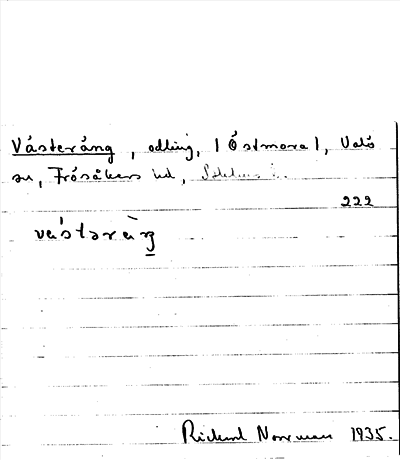 Västeräng, odling, | Östmora |, Valö
sn, Frösåkers hd,
222
västəräŋ
Rickard Norrman 1935.